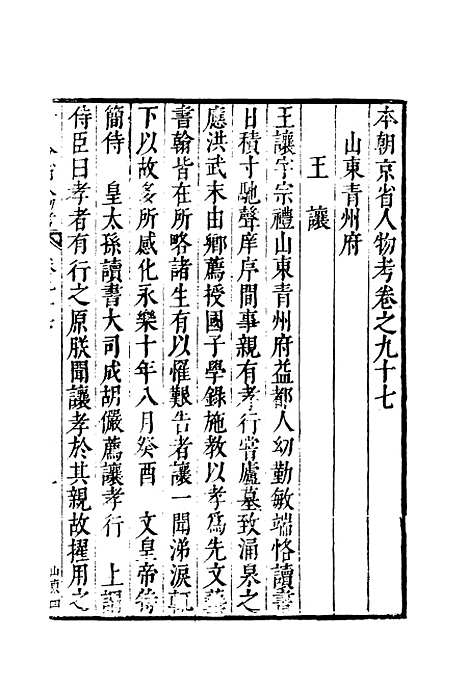 本朝京省人物考卷之九十七
山東青州府
王讓
王讓字宗禮山東青州府益都人幼勤敏端恪讀書
日積寸馳聲庠序間事親有孝行嘗廬墓致涌泉之
應洪武末由鄉薦授國子學錄施教以孝爲先文藝
書翰皆在所略諸生有以罹艱告者讓一聞涕淚輒
下以故多所感化永樂十年八月癸酉　文皇帝特
簡侍　皇太孫讀書大司成胡儼薦讓孝行　上謂
侍臣曰孝者有行之原朕聞讓孝於其親故擢用之
人物考
山東四